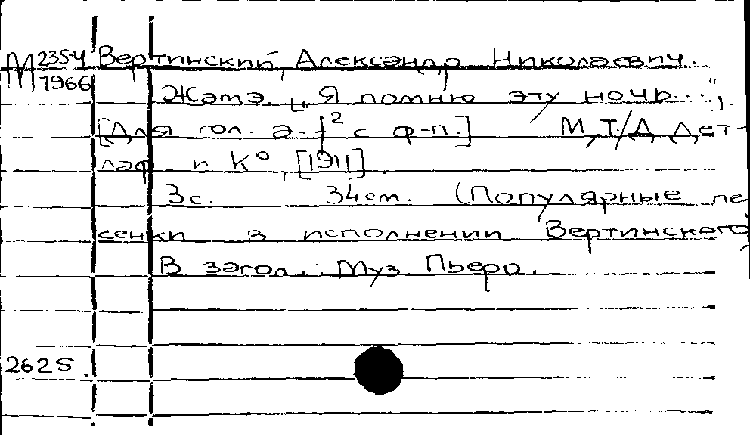 М 2354 Вертинский, Александр Николаевич.
1966
Жамэ. „Я помню эту ночь...",
[Для гол. a-f² с ф-п.] М, Т/Д Дет-
лаф и К°, [1911]
3с. 34см. (Популярные пе
сенки в исполнении Вертинского
В загол.: Муз. Пьеро.
2625.